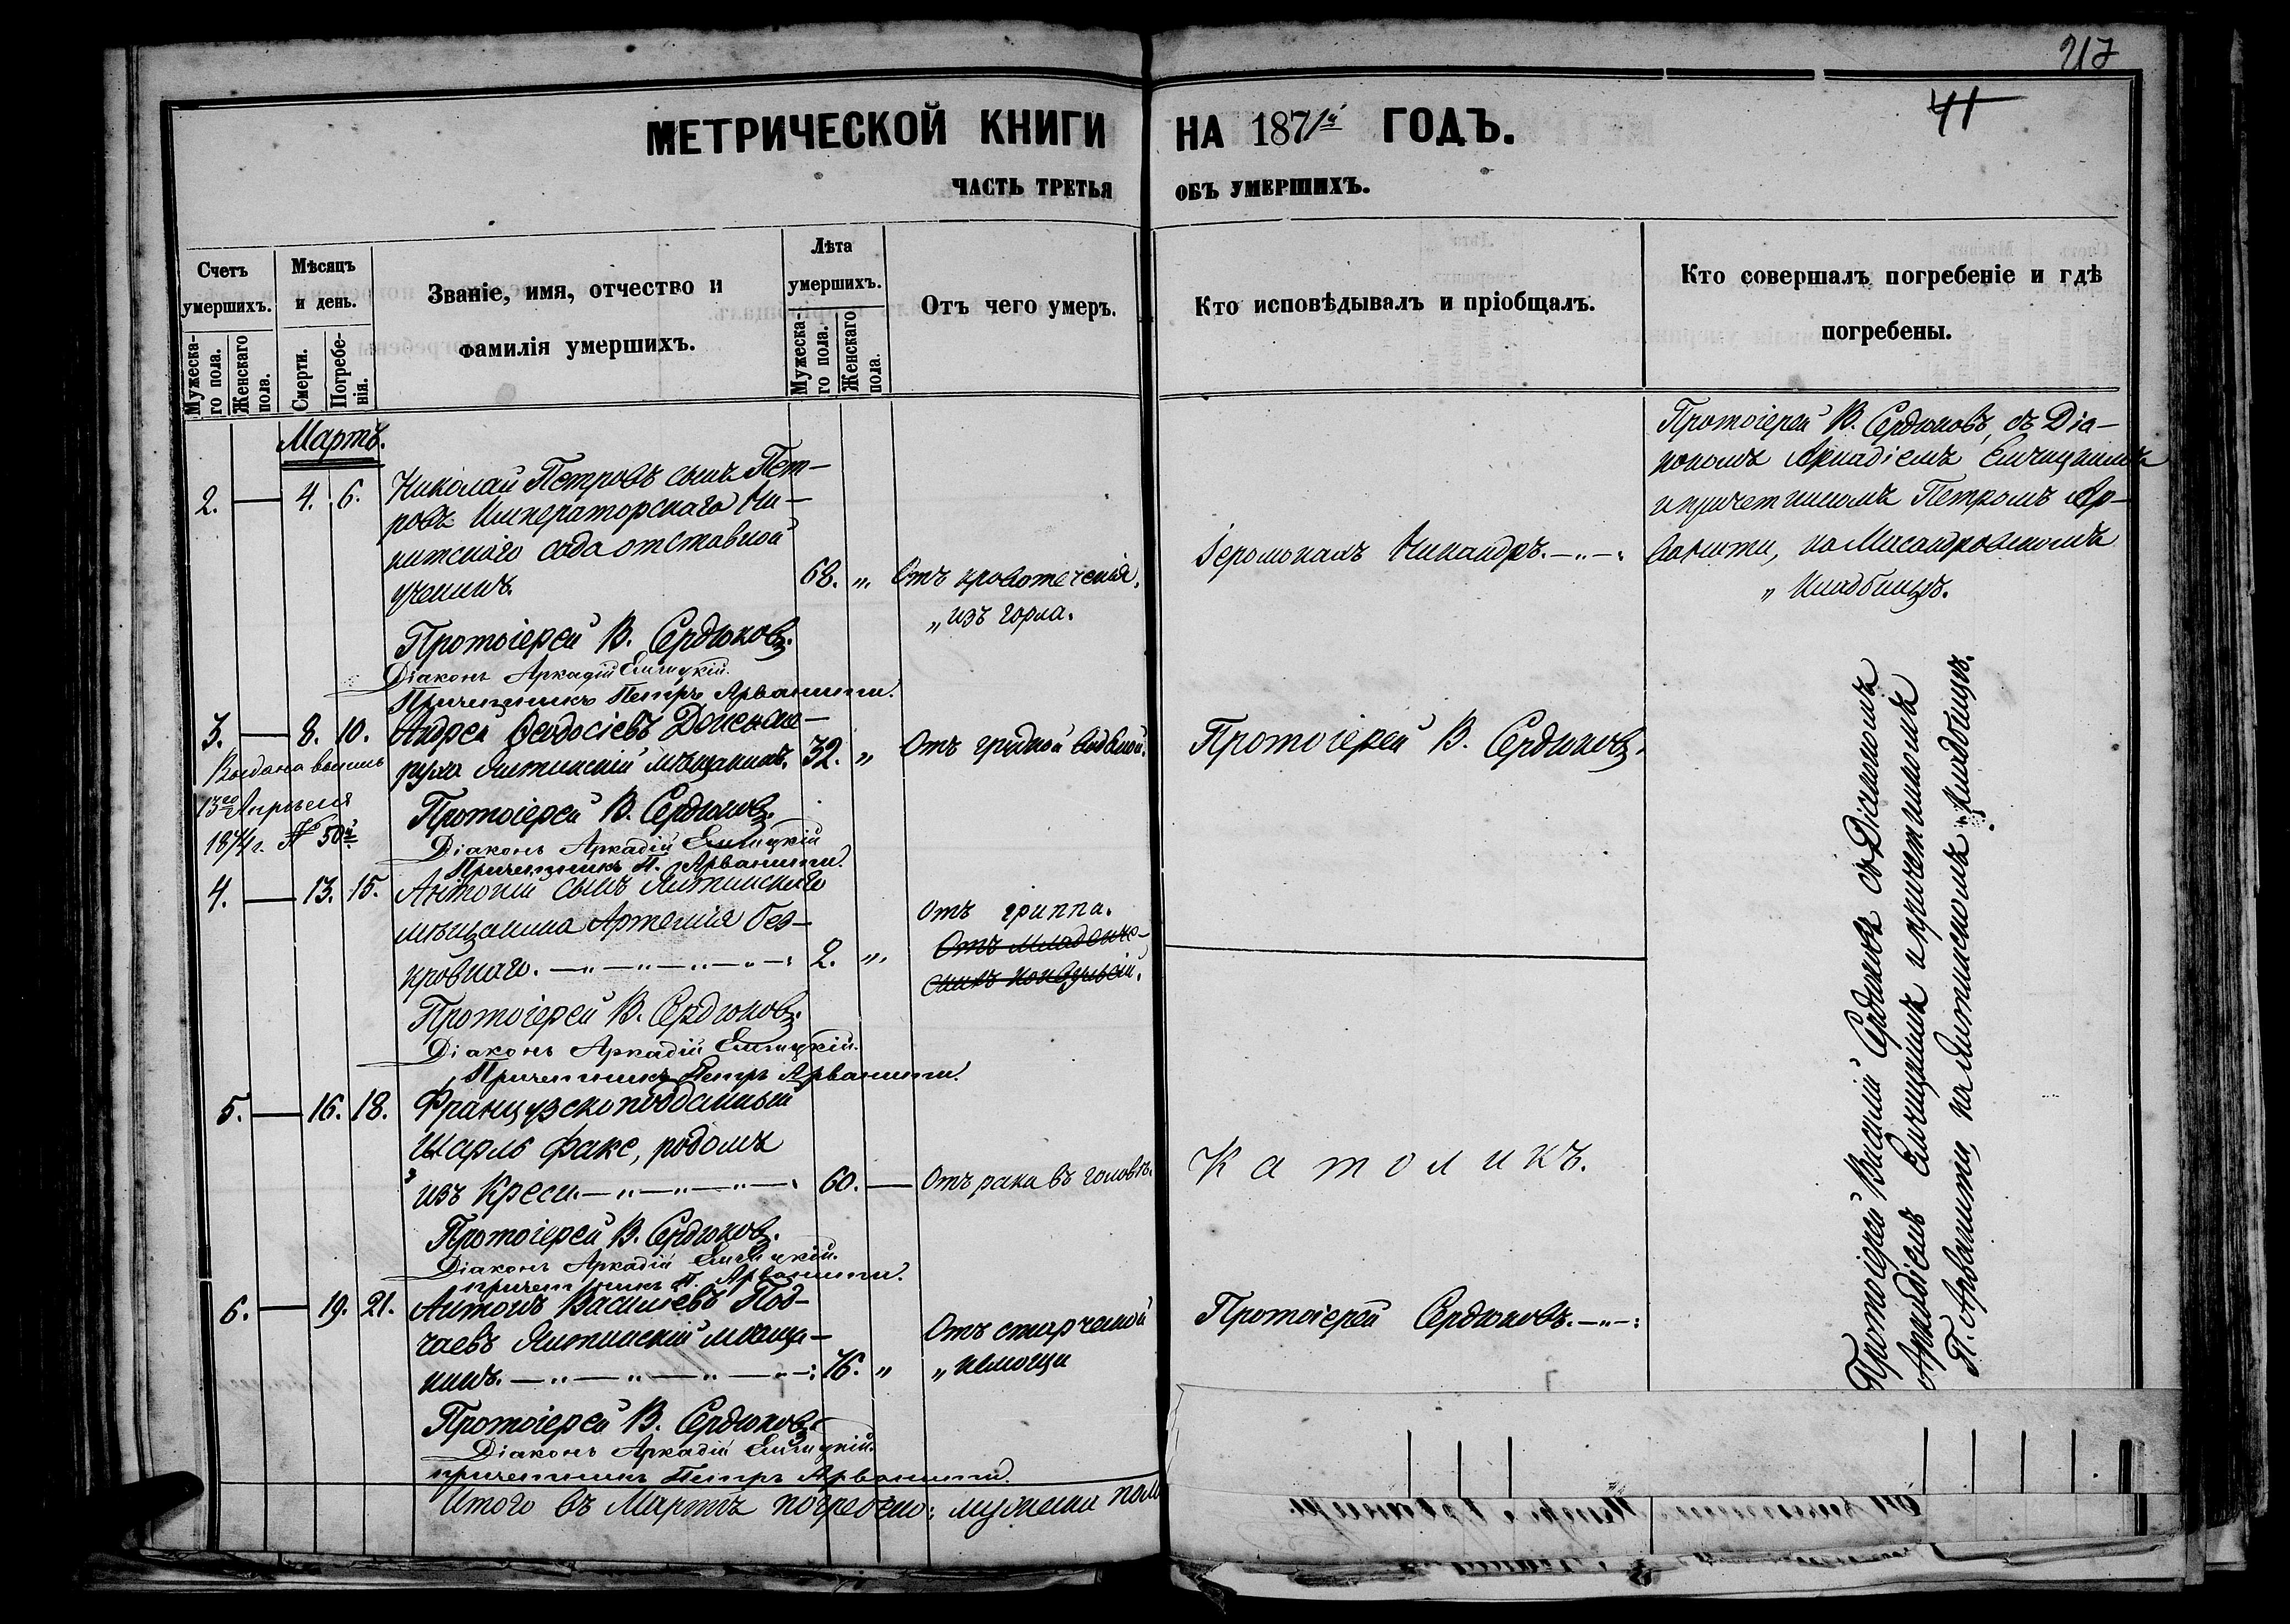 217
41
МЕТРИЧЕСКОЙ КНИГИ НА 1871й ГОДЪ.
ЧАСТЬ ТРЕТЬЯ ОБЪ УМЕРШИХЪ.
Счетъ умершихъ.
Мужеска-го пола.
Женскаго пола.
Мѣсяцъ и день.
Смерти.
Погребе-нія.
Званіе, имя, отчество и
фамилія умершихъ.
Лѣта умершихъ.
Мужеска-го пола.
Женскаго пола.
Отъ чего умеръ.
Кто исповѣдывалъ и пріобщалъ.
Кто совершалъ погребеніе и гдѣ
погребены.
Мартъ.
2. — 4. 6.
Николай Петровъ сынъ Пет-
ровъ Императорскаго Ни-
китскаго сада отставной
ученикъ.
68. "
Отъ кровотеченія,
" изъ горла.
Іеромонахъ Никандръ.
Протоіерей В. Сердюковъ, съ Діа-
кономъ Аркадіемъ
и причетникомъ Петромъ Ар-
ванити, на Масандровскомъ
" кладбищѣ.
Протоіерей В. Сердюковъ.
Діаконъ Аркадій
Причетникъ Петръ Арванити.
3. — 8. 10.
Андрей Ѳеодосіевъ
Ялтинскій мѣщанинъ.
32. "
Отъ грудной водяной.
Протоіерей В. Сердюковъ.
Выдана выпись
13го Апрѣля
1874 г. № 50й
Протоіерей В. Сердюковъ.
Діаконъ Аркадій
Причетникъ П. Арванити.
4. — 13. 15.
Антоній сынъ Ялтинскаго
мѣщанина Артемія Без-
кровнаго.
2. "
Отъ гриппа.
Отъ младенче-
скихъ конвульсій.
Протоіерей В. Сердюковъ.
Діаконъ Аркадій
Причетникъ Петръ Арванити.
5. — 16. 18.
Французскоподданный
Шарль Факс, родомъ
изъ Креси.
60. —
Отъ рака въ головѣ.
Католикъ.
Протоіерей В. Сердюковъ.
Діаконъ Аркадій
причетникъ П. Арванити.
6. — 19. 21.
Антонъ Васильевъ Под-
чаевъ Ялтинскій мѣща-
нинъ.
76. "
Отъ старческой
" немощи
Протоіерей Сердюковъ.
Протоіерей В. Сердюковъ.
Діаконъ Аркадій
причетникъ Петръ Арванити.
Протоіерей Василій Сердюковъ съ Діакономъ
Аркадіемъ и причетникомъ
П. Арванити, на Ялтинскомъ кладбищѣ.
Итого въ Мартѣ погребено: мужеска пола